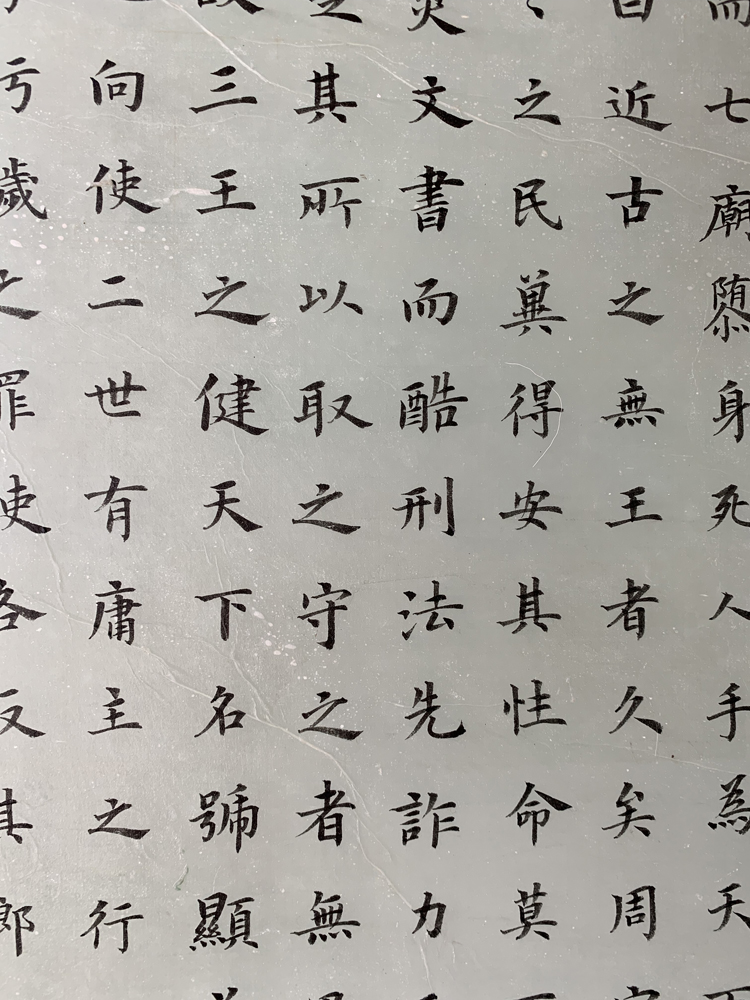 而七廟隳身死人手為天
近古之無王者久矣周
之民兾得安其性命莫
文書而酷刑法先詐力
其所以取之守之者無
三王之健天下名號顯
向使二世有庸主之行
歲之罪使各反其